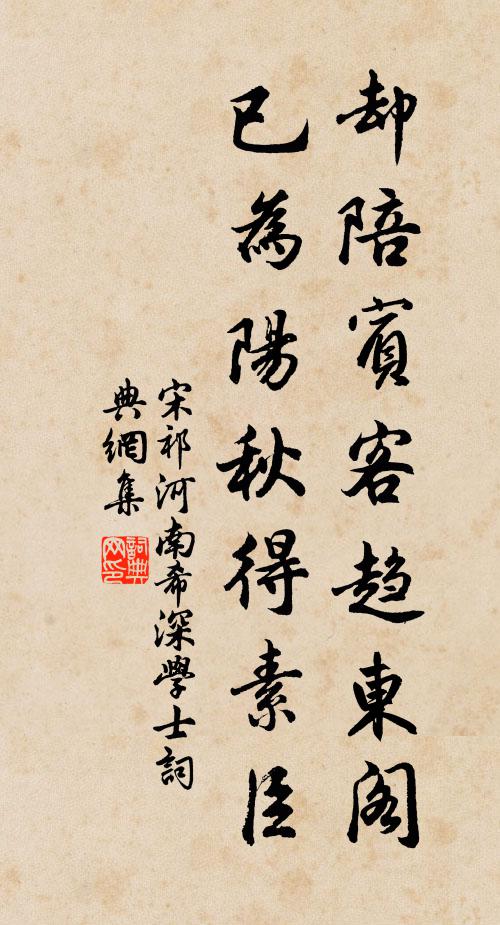 却陪賓客趋東阁
已為陽秋得素臣
宋祁河南希深學士詞
典網集
詞典
网印